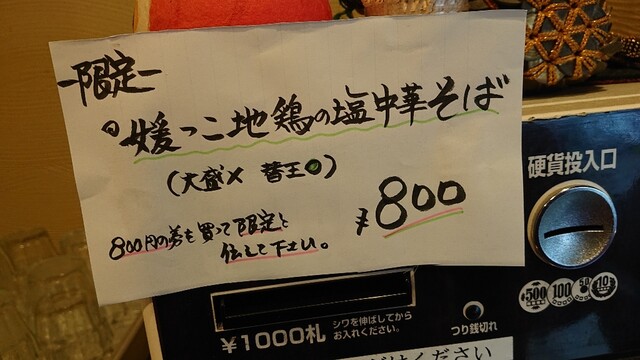 -限定-
媛っこ地鶏の塩中華そば
(大盛× 替玉◎)
¥800
800円の券を買って限定と
伝して下さい。
硬貨投入口
500 100 50 10
¥1000札
シワを伸ばしてから
お入れください。
つり銭切れ
ください